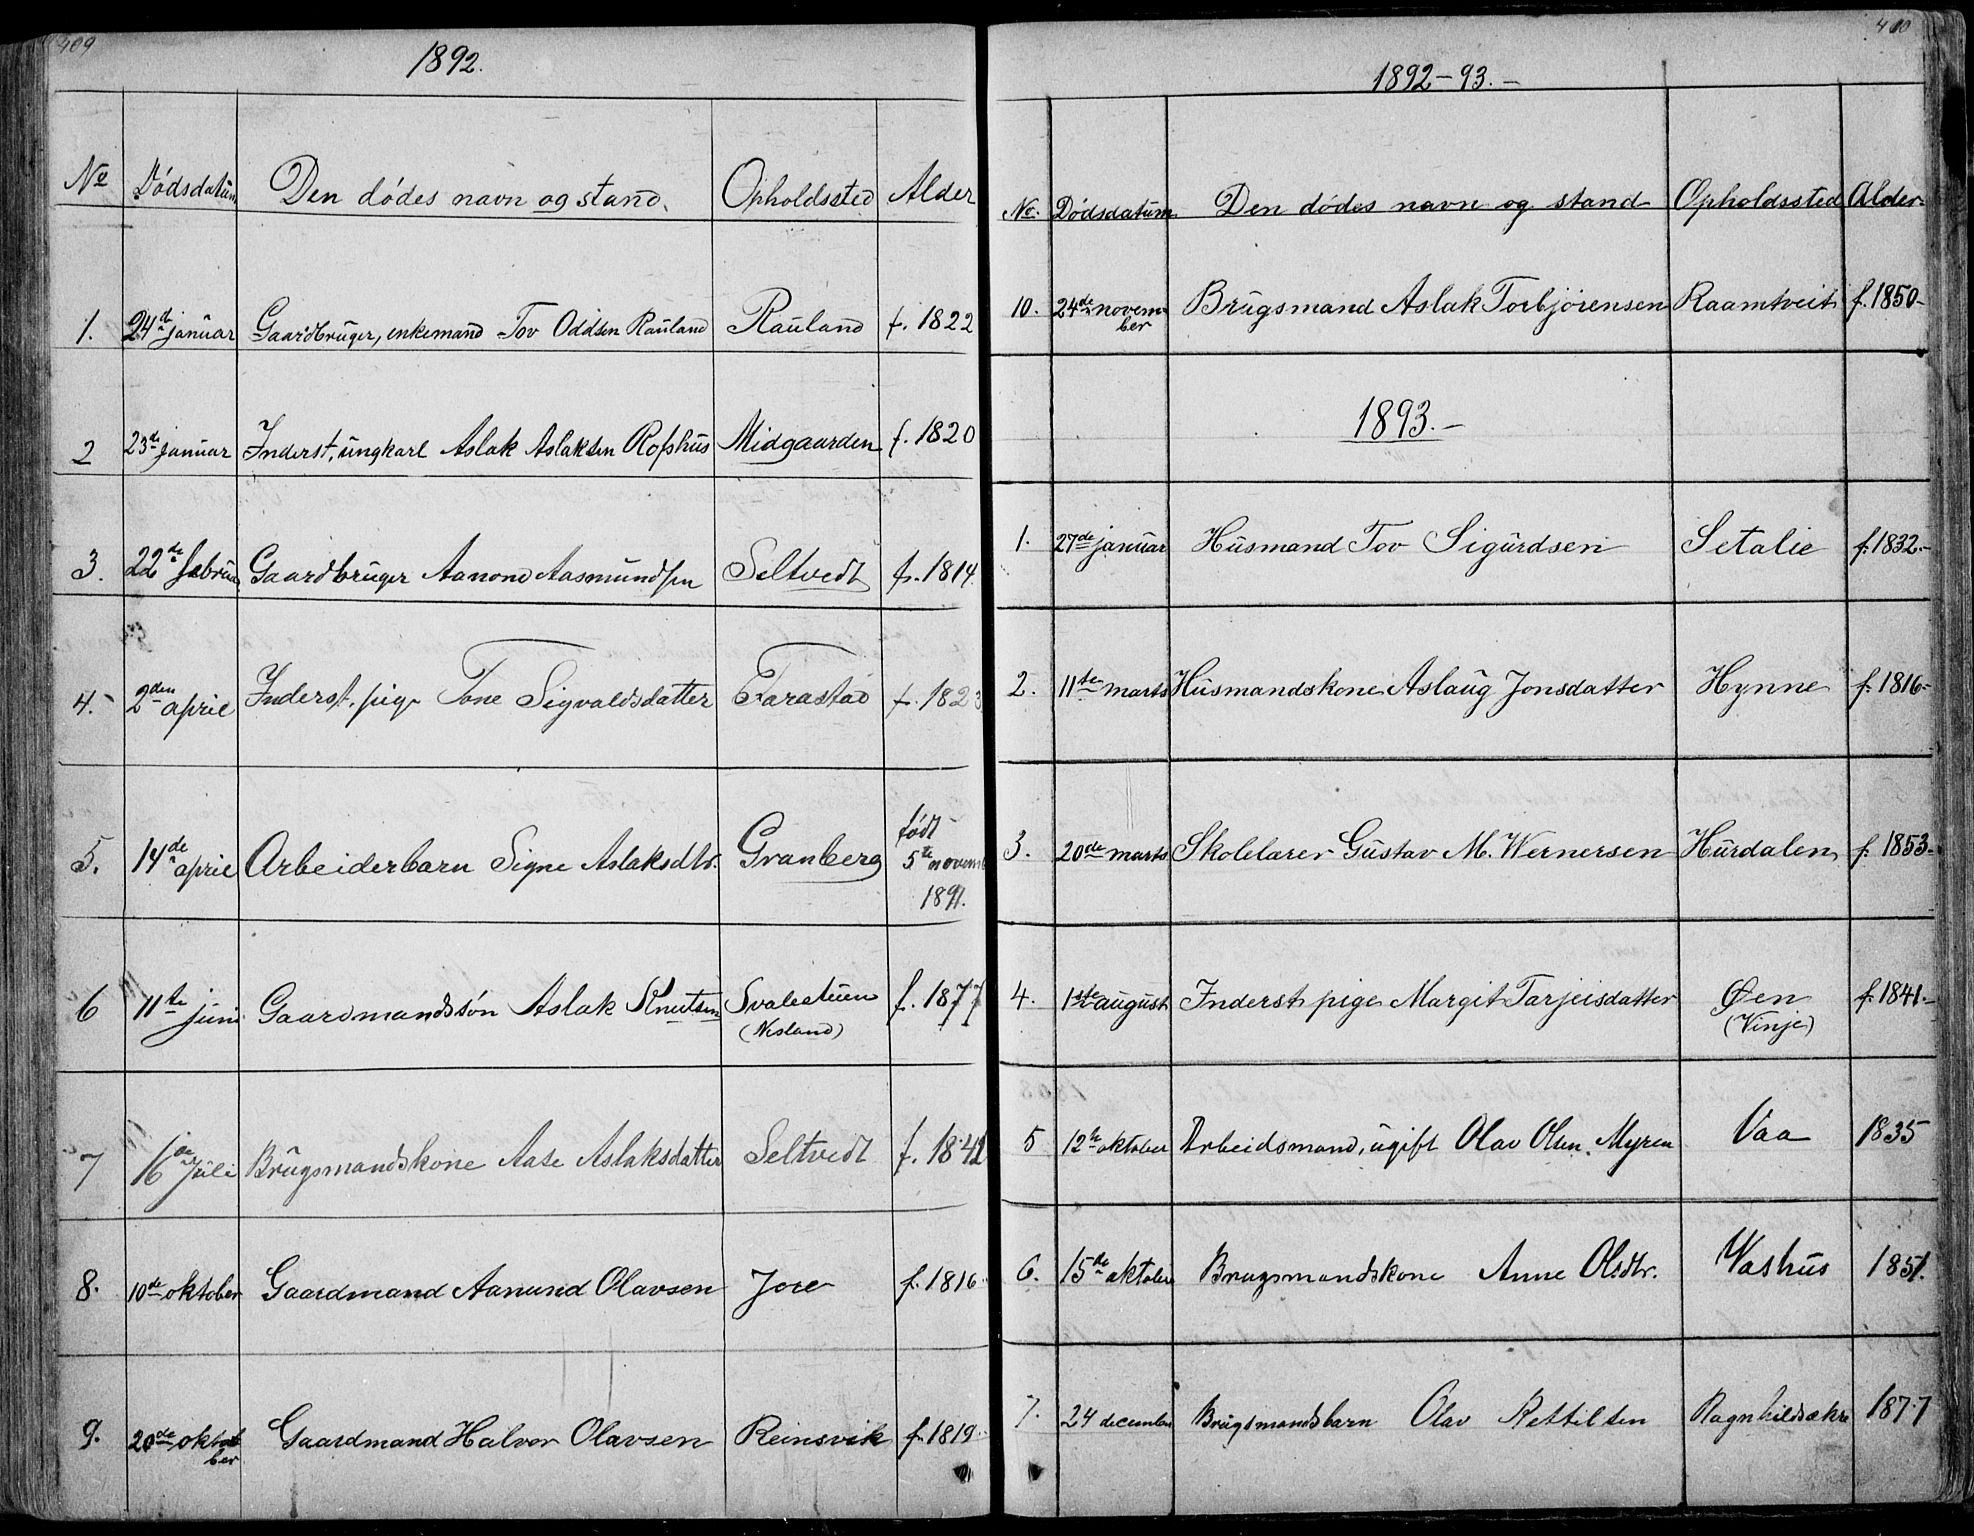 409
1892.
No Dødsdatum Den dødes navn og stand. Opholdssted Alder
1. 24de januar Gaardbruger, enkemand Tov Oddsen Rauland Rauland f. 1822
2 23de januar Inderst, ungkarl Aslak Aslaksen Rofshus Midgaarden f. 1820
3. 22de februar Gaardbruger Aanond Aasmundsen Seltvedt f. 1814.
4. 2den april Inderst. pige Tone Sigvaldsdatter Farastad f. 1823
5. 14de april Arbeiderbarn Signe Aslaksdtr. Granberg født
5te novemb
1891.
6 11te juni Gaardmandssøn Aslak Knutsen Svalestuen f. 1877
(Nesland)
7 16de juli Brugsmandskone Aase Aslaksdatter Seltvedt f. 1842
8. 10de oktober Gaardmand Aanund Olavsen Jore f. 1816.
9. 20de oktober Gaardmand Halvor Olavsen Reinsvik f. 1819.
410
1892-93.-
No. Dødsdatum Den dødes navn og stand Opholdssted Alder.
10. 24de november Brugsmand Aslak Torbjørensen Raamtveit f. 1850-
1893.-
1. 27de januar Husmand Tov Sigurdsen Setalie f. 1832.-
2. 11te marts Husmandskone Aslaug Jonsdatter Hynne f. 1816-
3. 20de marts Skolelærer Gustav M. Wernersen Hurdalen f. 1853-
4. 1ste august Inderst pige Margit Tarjeisdatter Øen f. 1841.-
(Vinje)
5 12te oktober Arbeidsmand, ugift Olav Olsen. Myren Vaa 1835
6. 15de oktober Brugsmandskone Anne Olsdtr. Vashus 1851.
7. 24 december Brugsmandsbarn Olav Kettilsen Ragnhildsakre 1877